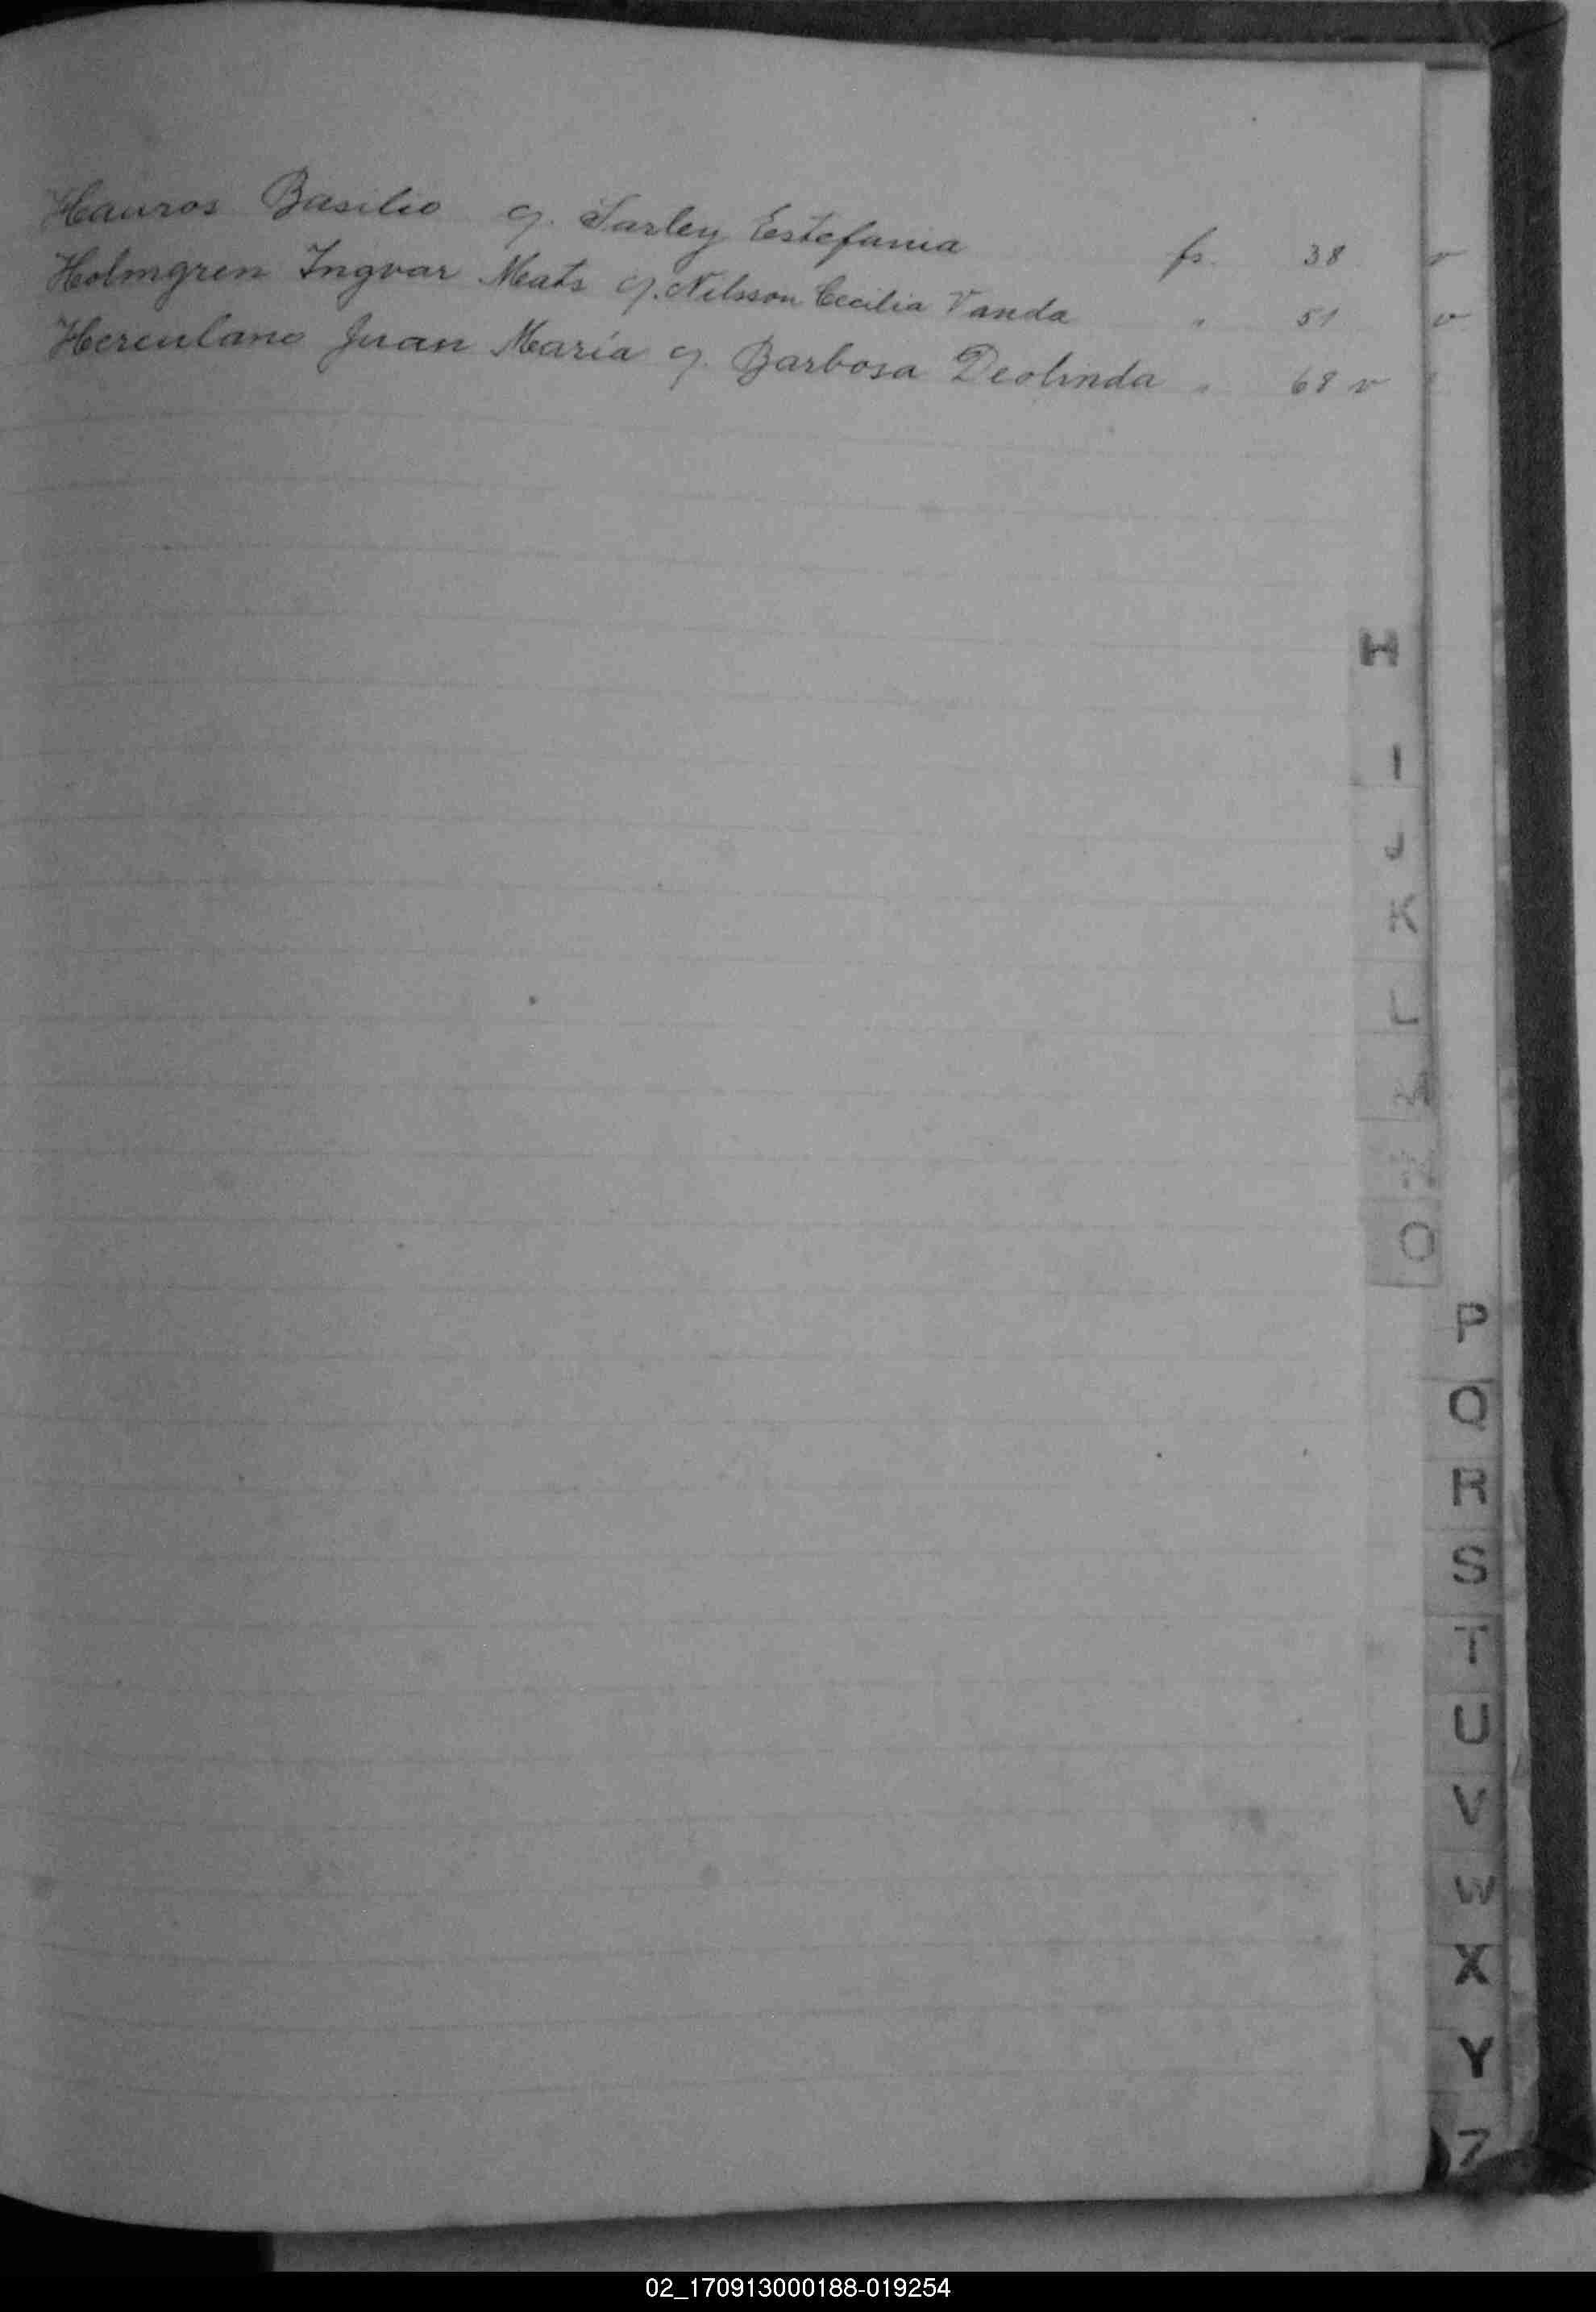 Hauros Basilio c/. Sarley Estefania fs. 38 v
Holmgren Ingvar Mats c/. Nilsson Cecilia Vanda " 51 v
Herculano Juan María c/. Barbosa Deolinda " 68 v
H
I
J
K
L
M
N
O
P
Q
R
S
T
U
V
W
X
Y
Z
02_170913000188-019254